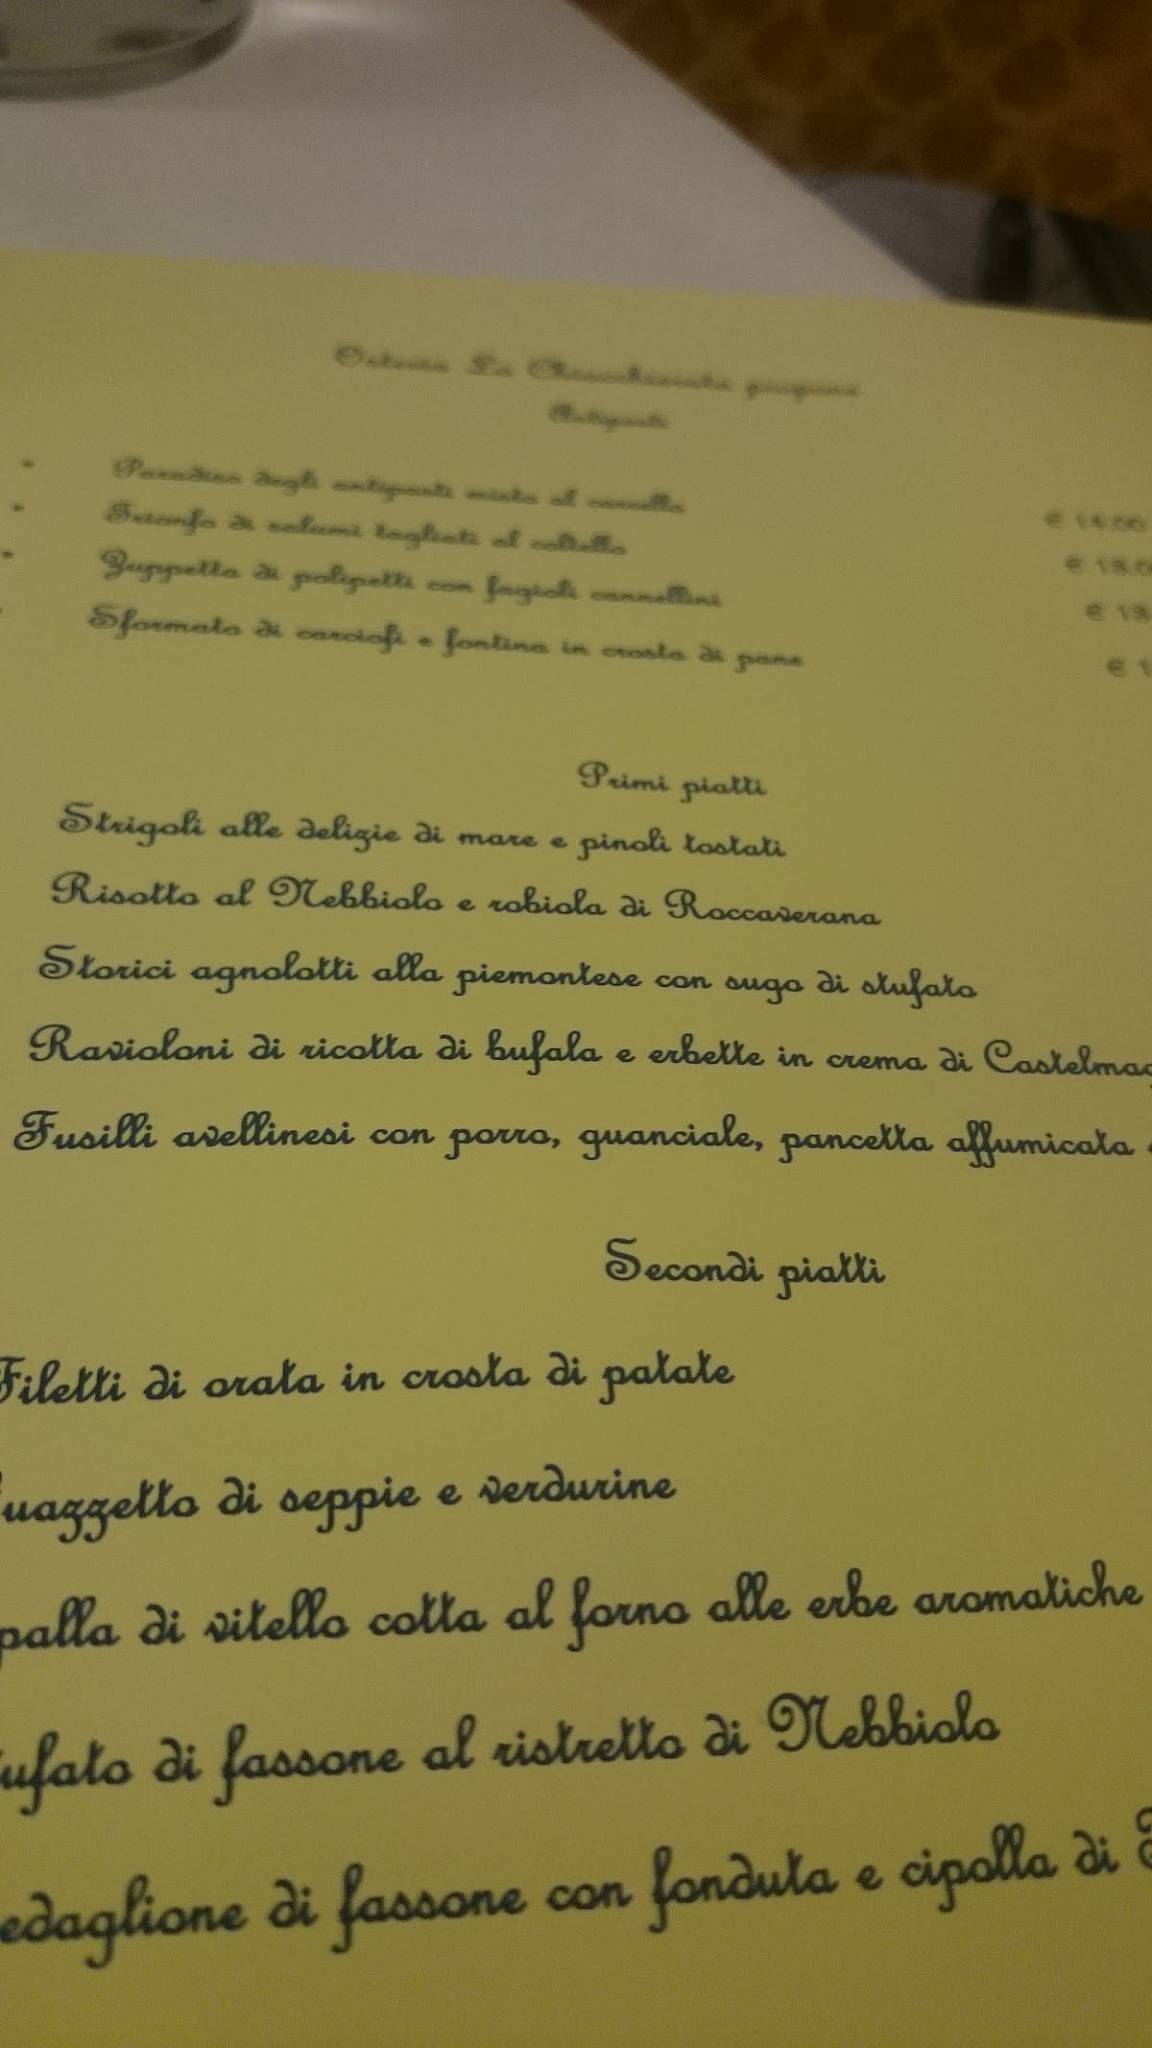 Osteria La Chiacchierata propone
Antipasti
Paradiso degli antipasti misto al carrello
Trionfo di salumi tagliati al coltello
€ 14.00
Zuppetta di polipetti con fagioli cannellini
Sformato di carciofi e fontina in crosta di pane
Primi piatti
Strigoli alle delizie di mare e pinoli tostati
Risotto al Nebbiolo e robiola di Roccaverana
Storici agnolotti alla piemontese con sugo di stufato
Ravioloni di ricotta di bufala e erbette in crema di Castelmag
Fusilli avellinesi con porro, guanciale, pancetta affumicata
Secondi piatti
Filetti di orata in crosta di patate
uazzetto di seppie e verdurine
palla di vitello cotta al forno alle erbe aromatiche
ufato di fassone al ristretto di Nebbiolo
edaglione di fassone con fonduta e cipolla di